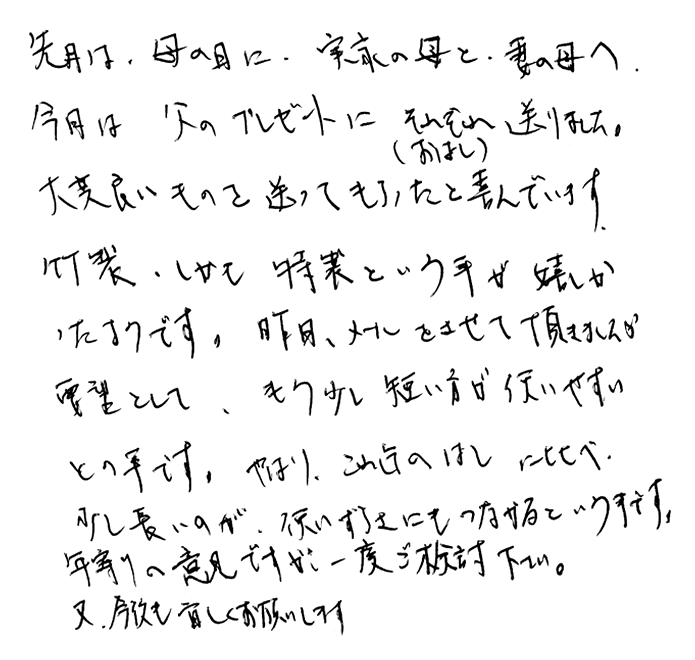 先月は、母の日に、実家の母と、妻の母へ、
今月は 父のプレゼントに それぞれ 送りました。
(おはし)
大変良いものを 送ってもらったと喜んでいます。
竹製、しかも 特製という事が 嬉しか
ったようです。昨日、メールをさせて頂きましたが
要望として、もう少し 短い方が 使いやすい
との事です。やはり、これ迄のはしに比べ、
少し長いのが、使いずらさにもつながるという事です。
年寄りの意見ですが、一度ご検討下さい。
又、今後も宜しくお願いします